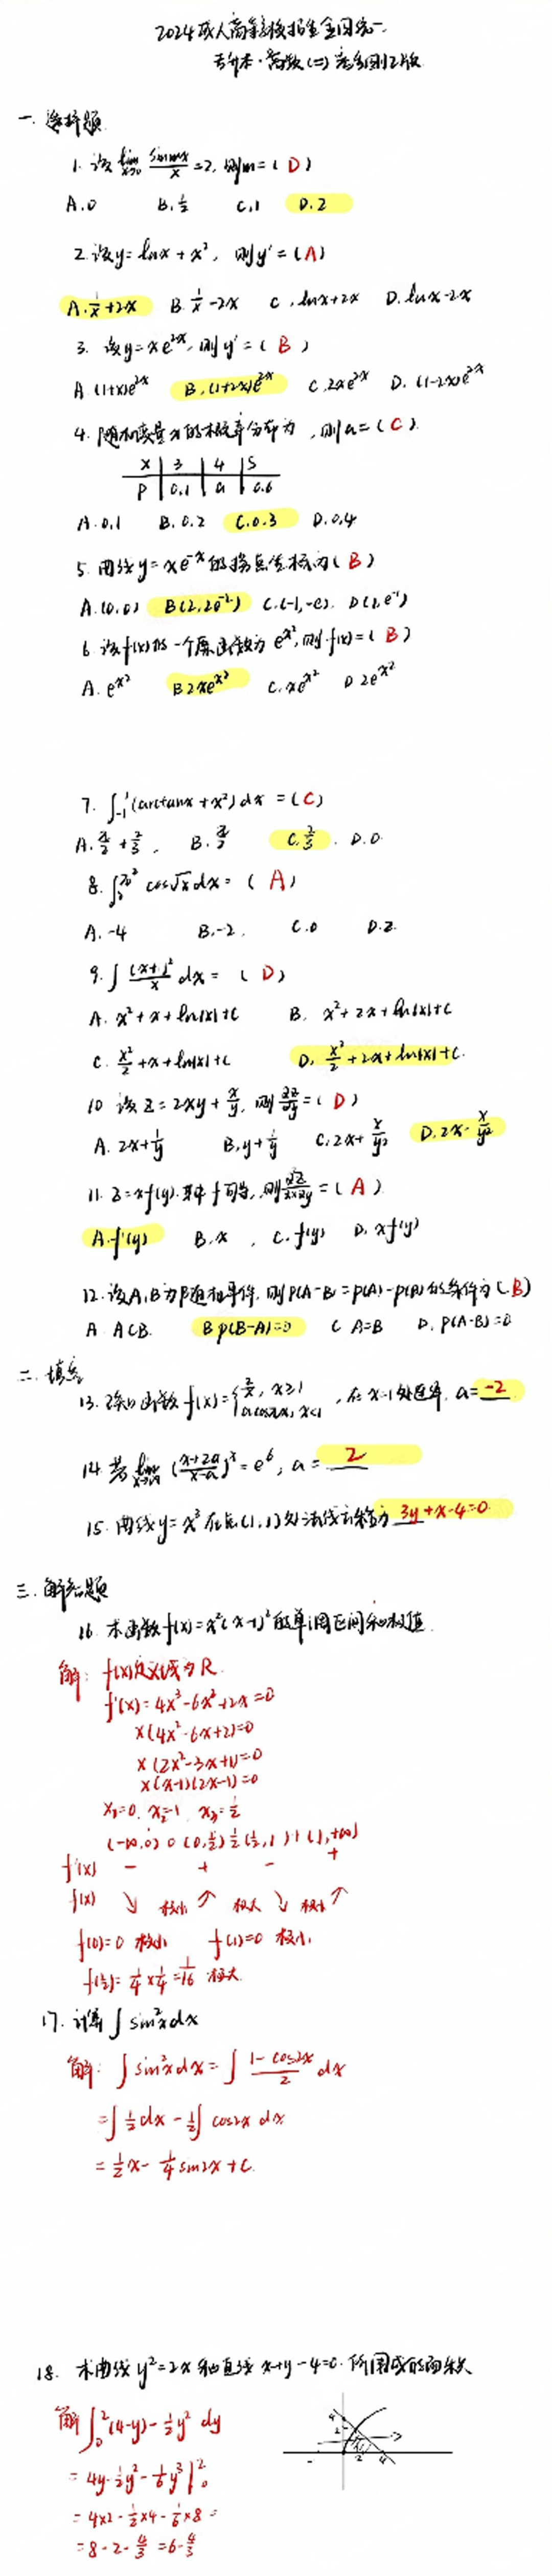 2024成人高等学校招生全国统一
专升本·高数(二)老李刚之版
一. 选择题
1. 设 lim x→0 sinmx/x =2, 则m=( D )
A. 0 B. 1/2 C. 1 D. 2
2. 设y=lnx+x², 则y'=(A)
A. 1/x+2x B. 1/x-2x C. lnx+2x D. lnx-2x
3. 设y=xe^2x, 则y'=( B )
A. (1+x)e^2x B. (1+2x)e^2x C. 2xe^2x D. (1-2x)e^2x
4. 随机变量x的概率分布为 , 则a=( C )
X | 3 | 4 | 5
P | 0.1 | a | 0.6
A. 0.1 B. 0.2 C. 0.3 D. 0.4
5. 曲线y=xe^-x的拐点坐标为( B )
A. (0,0) B(2,2e^-2) C. (-1,-e). D(1,e^-1)
6. 设f(x)的一个原函数为e^x², 则f(x)=( B )
A. e^x² B 2xe^x² C. xe^x² D 2e^x²
7. ∫_-1^1 (arctanx+x²)dx =(C)
A. π/2+2/3, B. π/2 C. 2/3. D. 0
8. ∫_0^π² cos√x dx= ( A )
A. -4 B. -2, C. 0 D. 2
9. ∫ (x+1)²/x dx= ( D )
A. x²+x+ln|x|+C B. x²+2x+ln|x|+C
C. x²/2+x+ln|x|+C D. x²/2+2x+ln|x|+C.
10 设z=2xy+x/y, 则∂z/∂y=( D )
A. 2x+1/y B. y+1/y C. 2x+x/y² D. 2x-x/y²
11. z=xf(y). 其中f可导, 则∂²z/∂x∂y=( A )
A. f'(y) B. x , C. f(y) D. xf'(y)
12. 设A,B为随机事件, 则P(A-B)=P(A)-P(B)的条件为( B )
A A⊂B. B P(B-A)=0 C A=B D. P(A-B)=0
二. 填空
13. 函数f(x)={2/x, x≥1
acosπx, x<1 , 在x=1处连续, a=-2
14. 若lim x→∞ (x+2a/x-a)^x=e^6, a= 2
15. 曲线y=x³在点(1,1)处法线方程为 3y+x-4=0
三. 解答题
16. 求函数f(x)=x²(x-1)²的单调区间和极值
解: f(x)定义域为R.
f'(x)=4x³-6x²+2x=0
x(4x²-6x+2)=0
x(2x²-3x+1)=0
x(x-1)(2x-1)=0
x₁=0. x₂=1 x₃=1/2
(-∞,0) 0 (0,1/2) 1/2 (1/2,1) 1 (1,+∞)
f'(x) - + - +
f(x) ↘ 极小 ↗ 极大 ↘ 极小 ↗
f(0)=0 极小 f(1)=0 极小
f(1/2)=1/4×1/4=1/16 极大
17. 计算∫sin²xdx
解: ∫sin²xdx=∫ 1-cos2x/2 dx
=∫1/2dx-1/2∫cos2x dx
=1/2x-1/4sin2x+C.
18. 求曲线y²=2x和直线x+y-4=0. 所围成的面积
解∫_0^2(4-y)-1/2y² dy
=4y-1/2y²-1/6y³|_0^2
=4×2-1/2×4-1/6×8=
=8-2-4/3=6-4/3